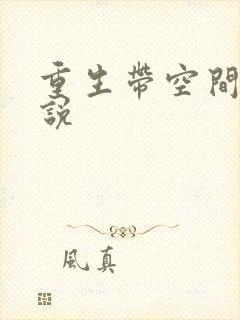 重生帶空間
説
風真